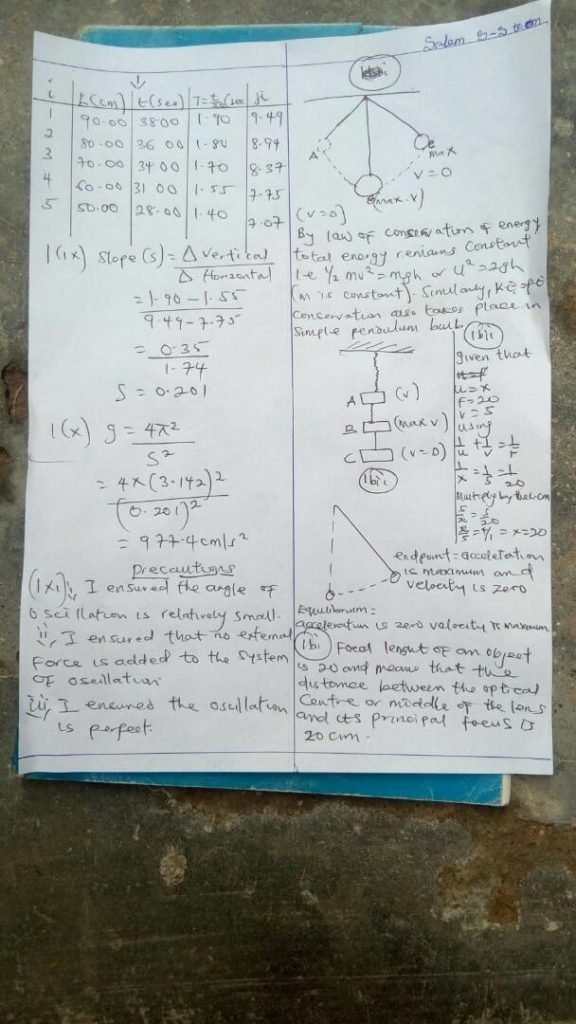 i
L(cm) t(sec) T=t/20(sec √L
1 90.00 38.00 1.90 9.49
2 80.00 36.00 1.80 8.94
3 70.00 34.00 1.70 8.37
4 60.00 31.00 1.55 7.75
5 50.00 28.00 1.40 7.07
1(ix) Slope (s) = Δ vertical / Δ Horizontal
= 1.90 - 1.55 / 9.49 - 7.75
= 0.35 / 1.74
S = 0.201
1(x) g = 4π² / S²
= 4 x (3.142)² / (0.201)²
= 977.4cm/s²
Precautions
(1xi) i, I ensured the angle of
oscillation is relatively small.
ii, I ensured that no external
Force is added to the system
of oscillation
iii, I ensured the oscillation
is perfect.
A
max
V = 0
(max.v)
(V=0)
By law of conservation of energy
total energy remains Constant
i.e ½ mv² = mgh or U² = 2gh
(m is constant). Similarly, KE = PE
Conservation also takes place in
Simple pendulum
A (v)
B (max v)
C (v=0)
1bii
1bii
given that
u = x
f = 20
v = 5
using
1/u + 1/v = 1/f
endpoint = acceleration
is maximum and
velocity is zero
Equilibrium =
acceleration is zero velocity is maximum
1bi Focal lenght of an object
is 20 and means that the
distance between the optical
Centre or middle of the lens
and its principal focus is
20cm.